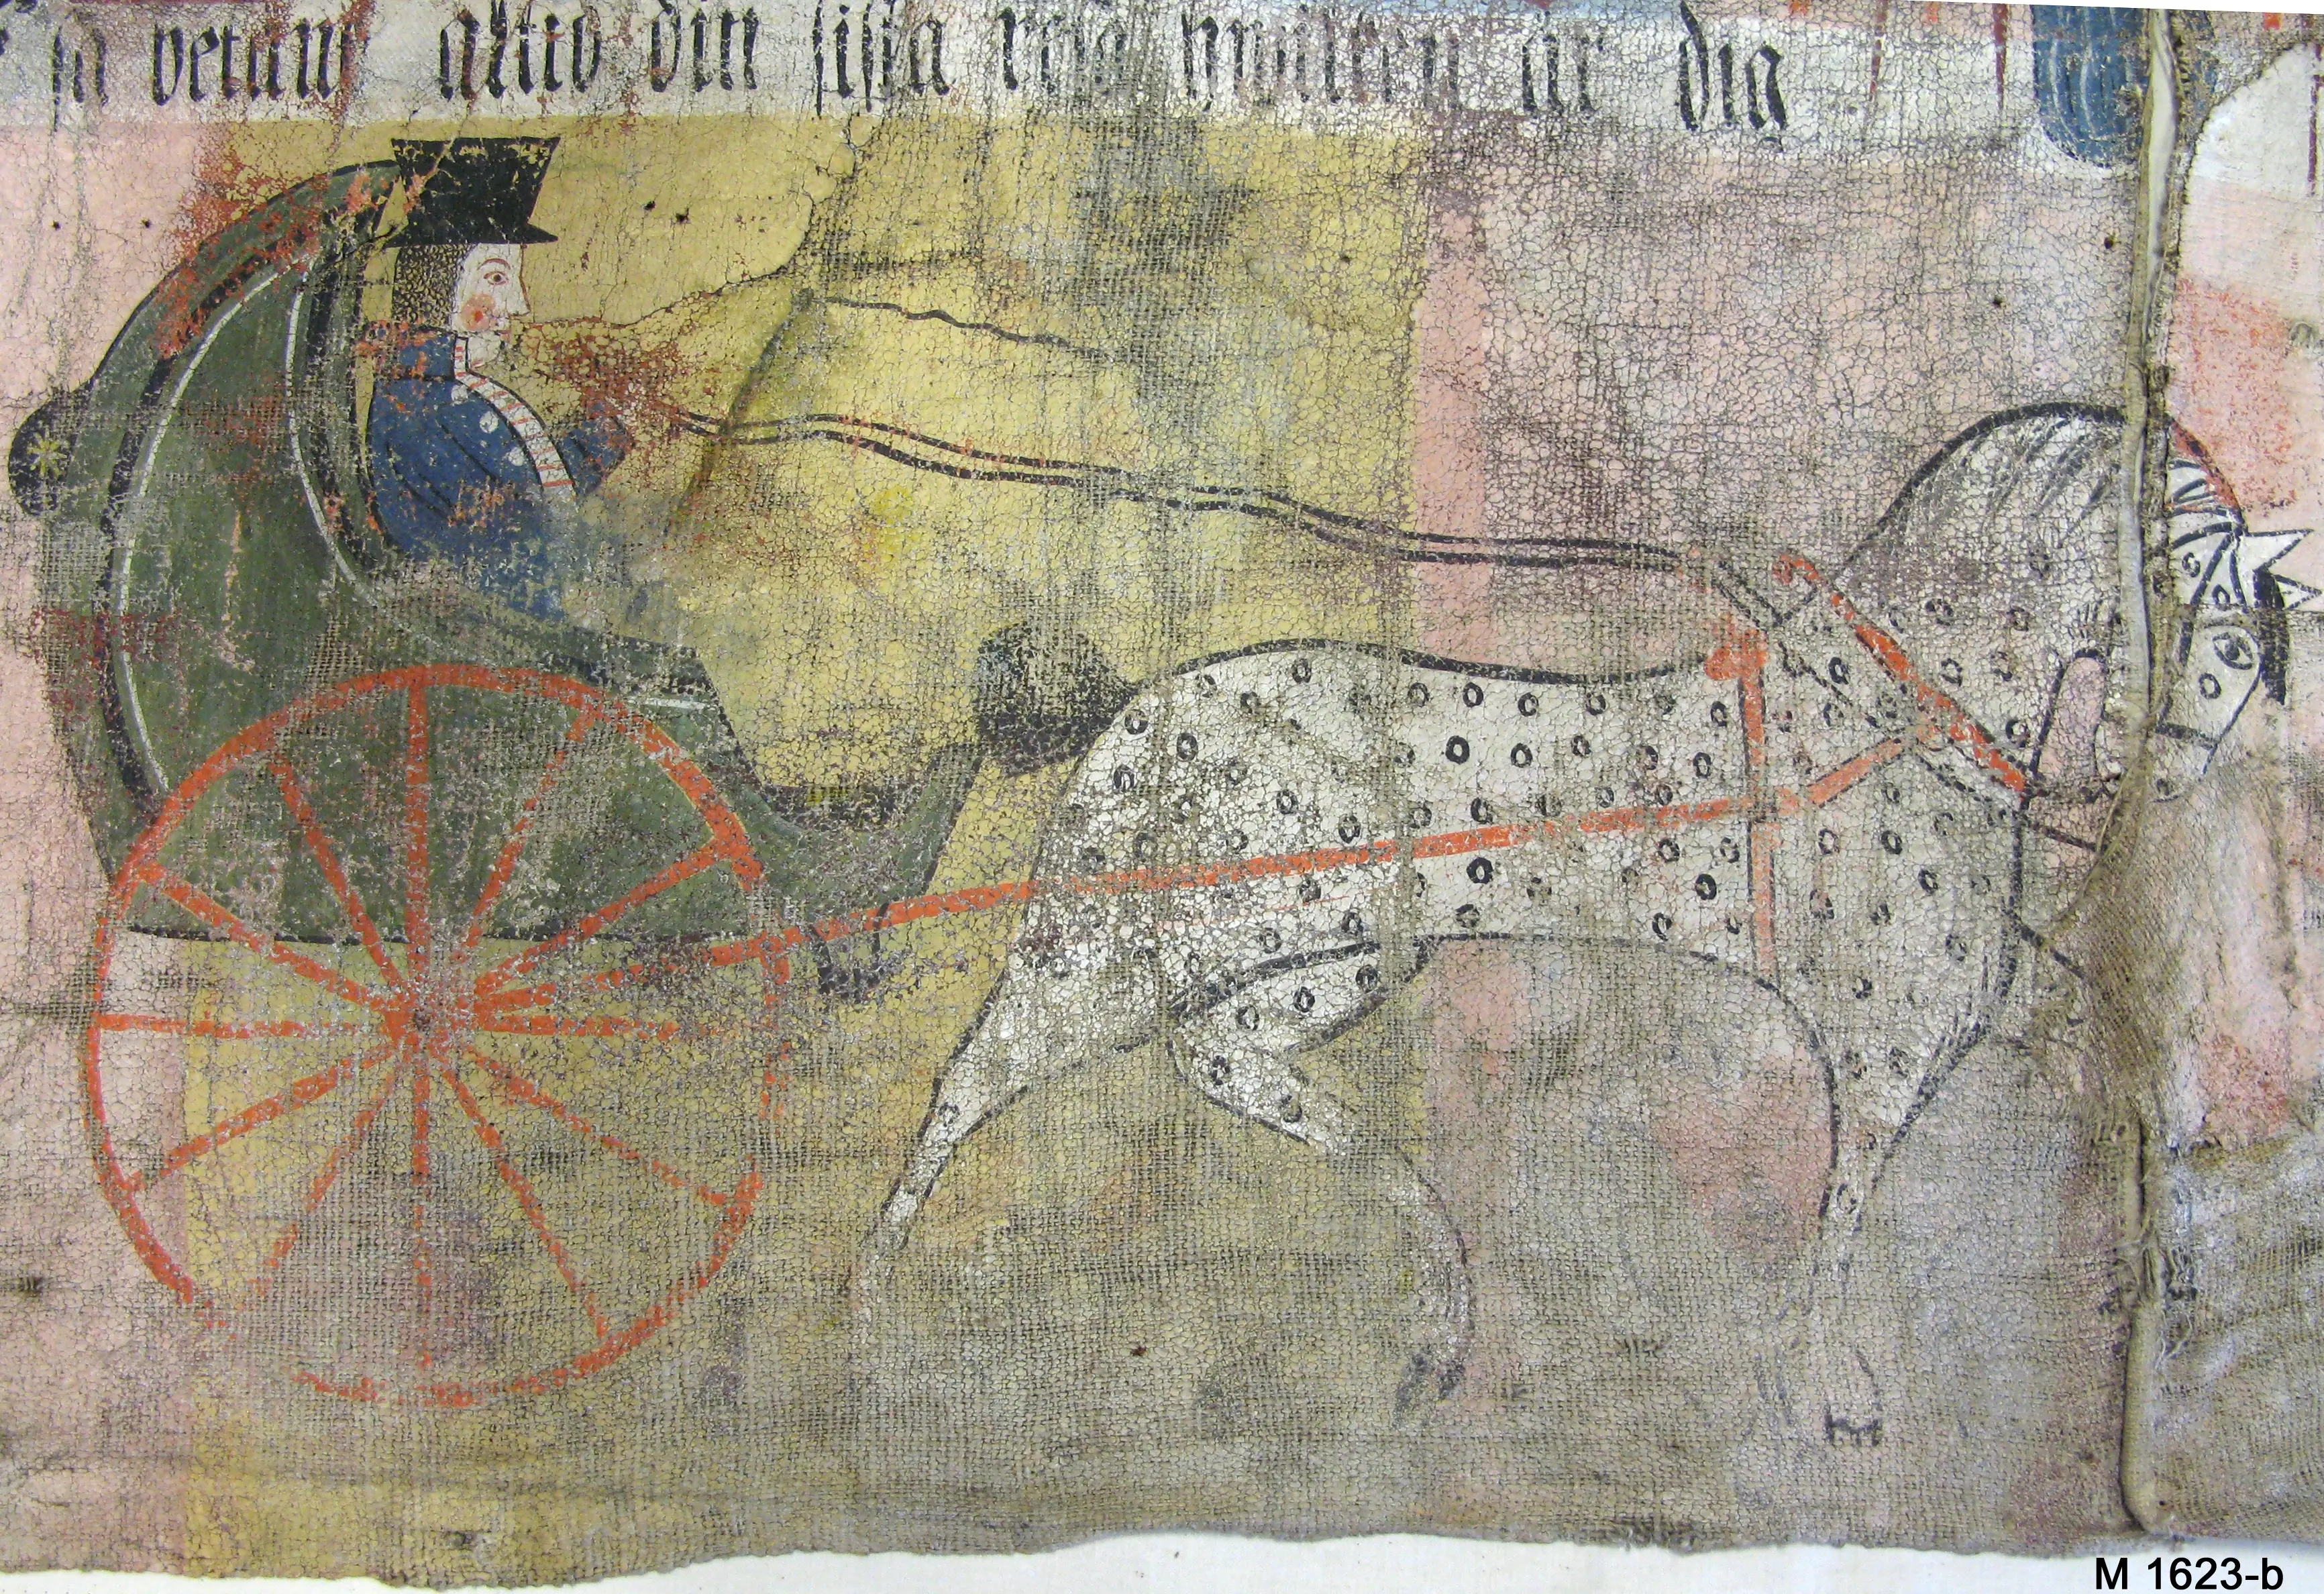 så betänk alltid din sista resa hvilken är dig
M 1623-b